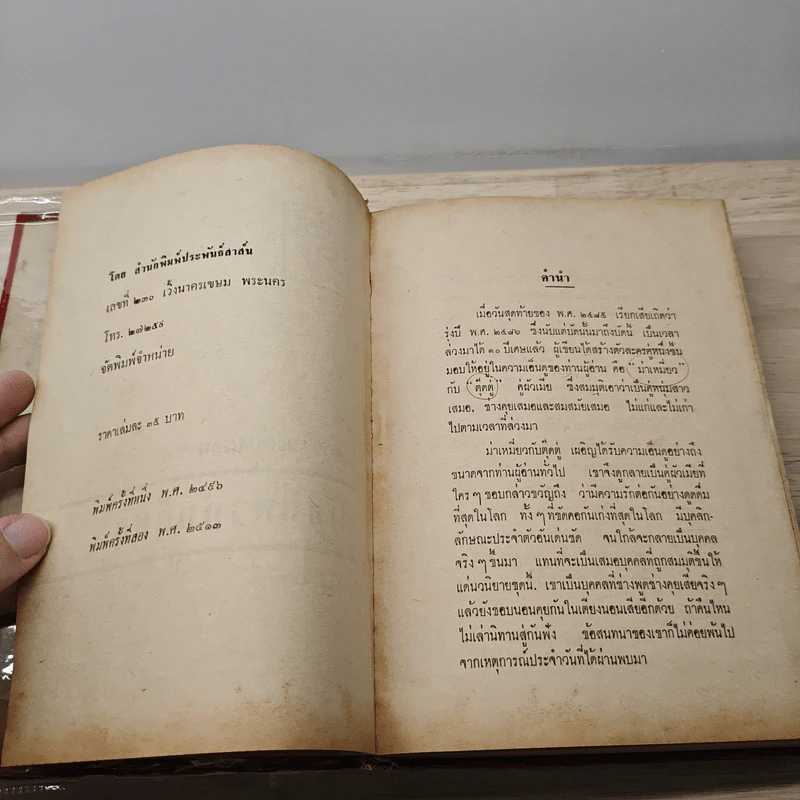 โดย สำนักพิมพ์ประพันธ์สาส์น
เลขที่ ๒๓๐ เวิ้งนาครเขษม พระนคร
โทร. ๒๗๒๕๙
จัดพิมพ์จำหน่าย
ราคาเล่มละ ๓๕ บาท
พิมพ์ครั้งที่หนึ่ง พ.ศ. ๒๔๙๖
พิมพ์ครั้งที่สอง พ.ศ. ๒๕๑๓
คำนำ
เมื่อวันสุดท้ายของ พ.ศ. ๒๔๘๕ เรียกเสียเถิดว่า
รุ่งปี พ.ศ. ๒๔๘๖ ซึ่งนับแต่บัดนั้นมาถึงบัดนี้ เป็นเวลา
ล่วงมาได้ ๓๐ ปีเศษแล้ว ผู้เขียนได้สร้างตัวละครคู่หนึ่งขึ้น
มอบให้อยู่ในความเอ็นดูของท่านผู้อ่าน คือ “ม่าเหมี่ยว”
กับ “ตุ๊ดตู่” คู่ผัวเมีย ซึ่งสมมุติเอาว่าเป็นคู่หนุ่มสาว
เสมอ, ช่างคุยเสมอและสมสมัยเสมอ ไม่แก่และไม่เก่า
ไปตามเวลาที่ล่วงมา
ม่าเหมี่ยวกับตุ๊ดตู่ เผอิญได้รับความเอ็นดูอย่างถึง
ขนาดจากท่านผู้อ่านทั่วไป เขาจึงดูกลายเป็นคู่ผัวเมียที่
ใคร ๆ ชอบกล่าวขวัญถึง ว่ามีความรักต่อกันอย่างดูดดื่ม
ที่สุดในโลก ทั้ง ๆ ที่ขัดคอกันเก่งที่สุดในโลก มีบุคลิก-
ลักษณะประจำตัวอันเด่นชัด จนใกล้จะกลายเป็นบุคคล
จริง ๆ ขึ้นมา แทนที่จะเป็นเสมอบุคคลที่ถูกสมมุติขึ้นให้
แด่นวนิยายชุดนี้. เขาเป็นบุคคลที่ช่างพูดช่างคุยเสียจริง ๆ
แล้วยังชอบนอนคุยกันในเตียงนอนเสียอีกด้วย ถ้าคืนไหน
ไม่เล่านิทานสู่กันฟัง ข้อสนทนาของเขาก็ไม่ค่อยพ้นไป
จากเหตุการณ์ประจำวันที่ได้ผ่านพบมา